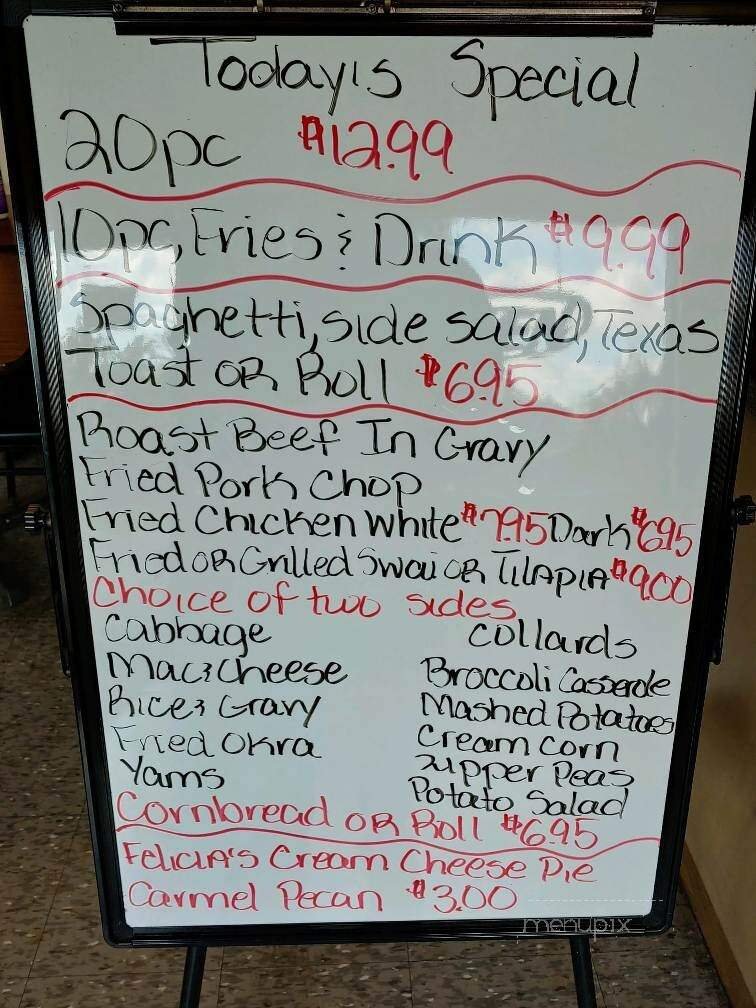 Today's Special
20pc $12.99
10pc, Fries & Drink $9.99
Spaghetti, side salad, Texas
Toast OR Roll $6.95
Roast Beef In Gravy
Fried Pork Chop
Fried Chicken White $7.95 Dark $6.95
Fried OR Grilled Swai OR TILAPIA $9.00
Choice of two sides
Cabbage
Mac & Cheese
Rice & Gravy
Fried Okra
Yams
Collards
Broccoli Casserole
Mashed Potatoes
Cream Corn
Zipper Peas
Potato Salad
Cornbread OR Roll $6.95
FELICIA'S Cream Cheese Pie
Carmel Pecan $3.00
menupix